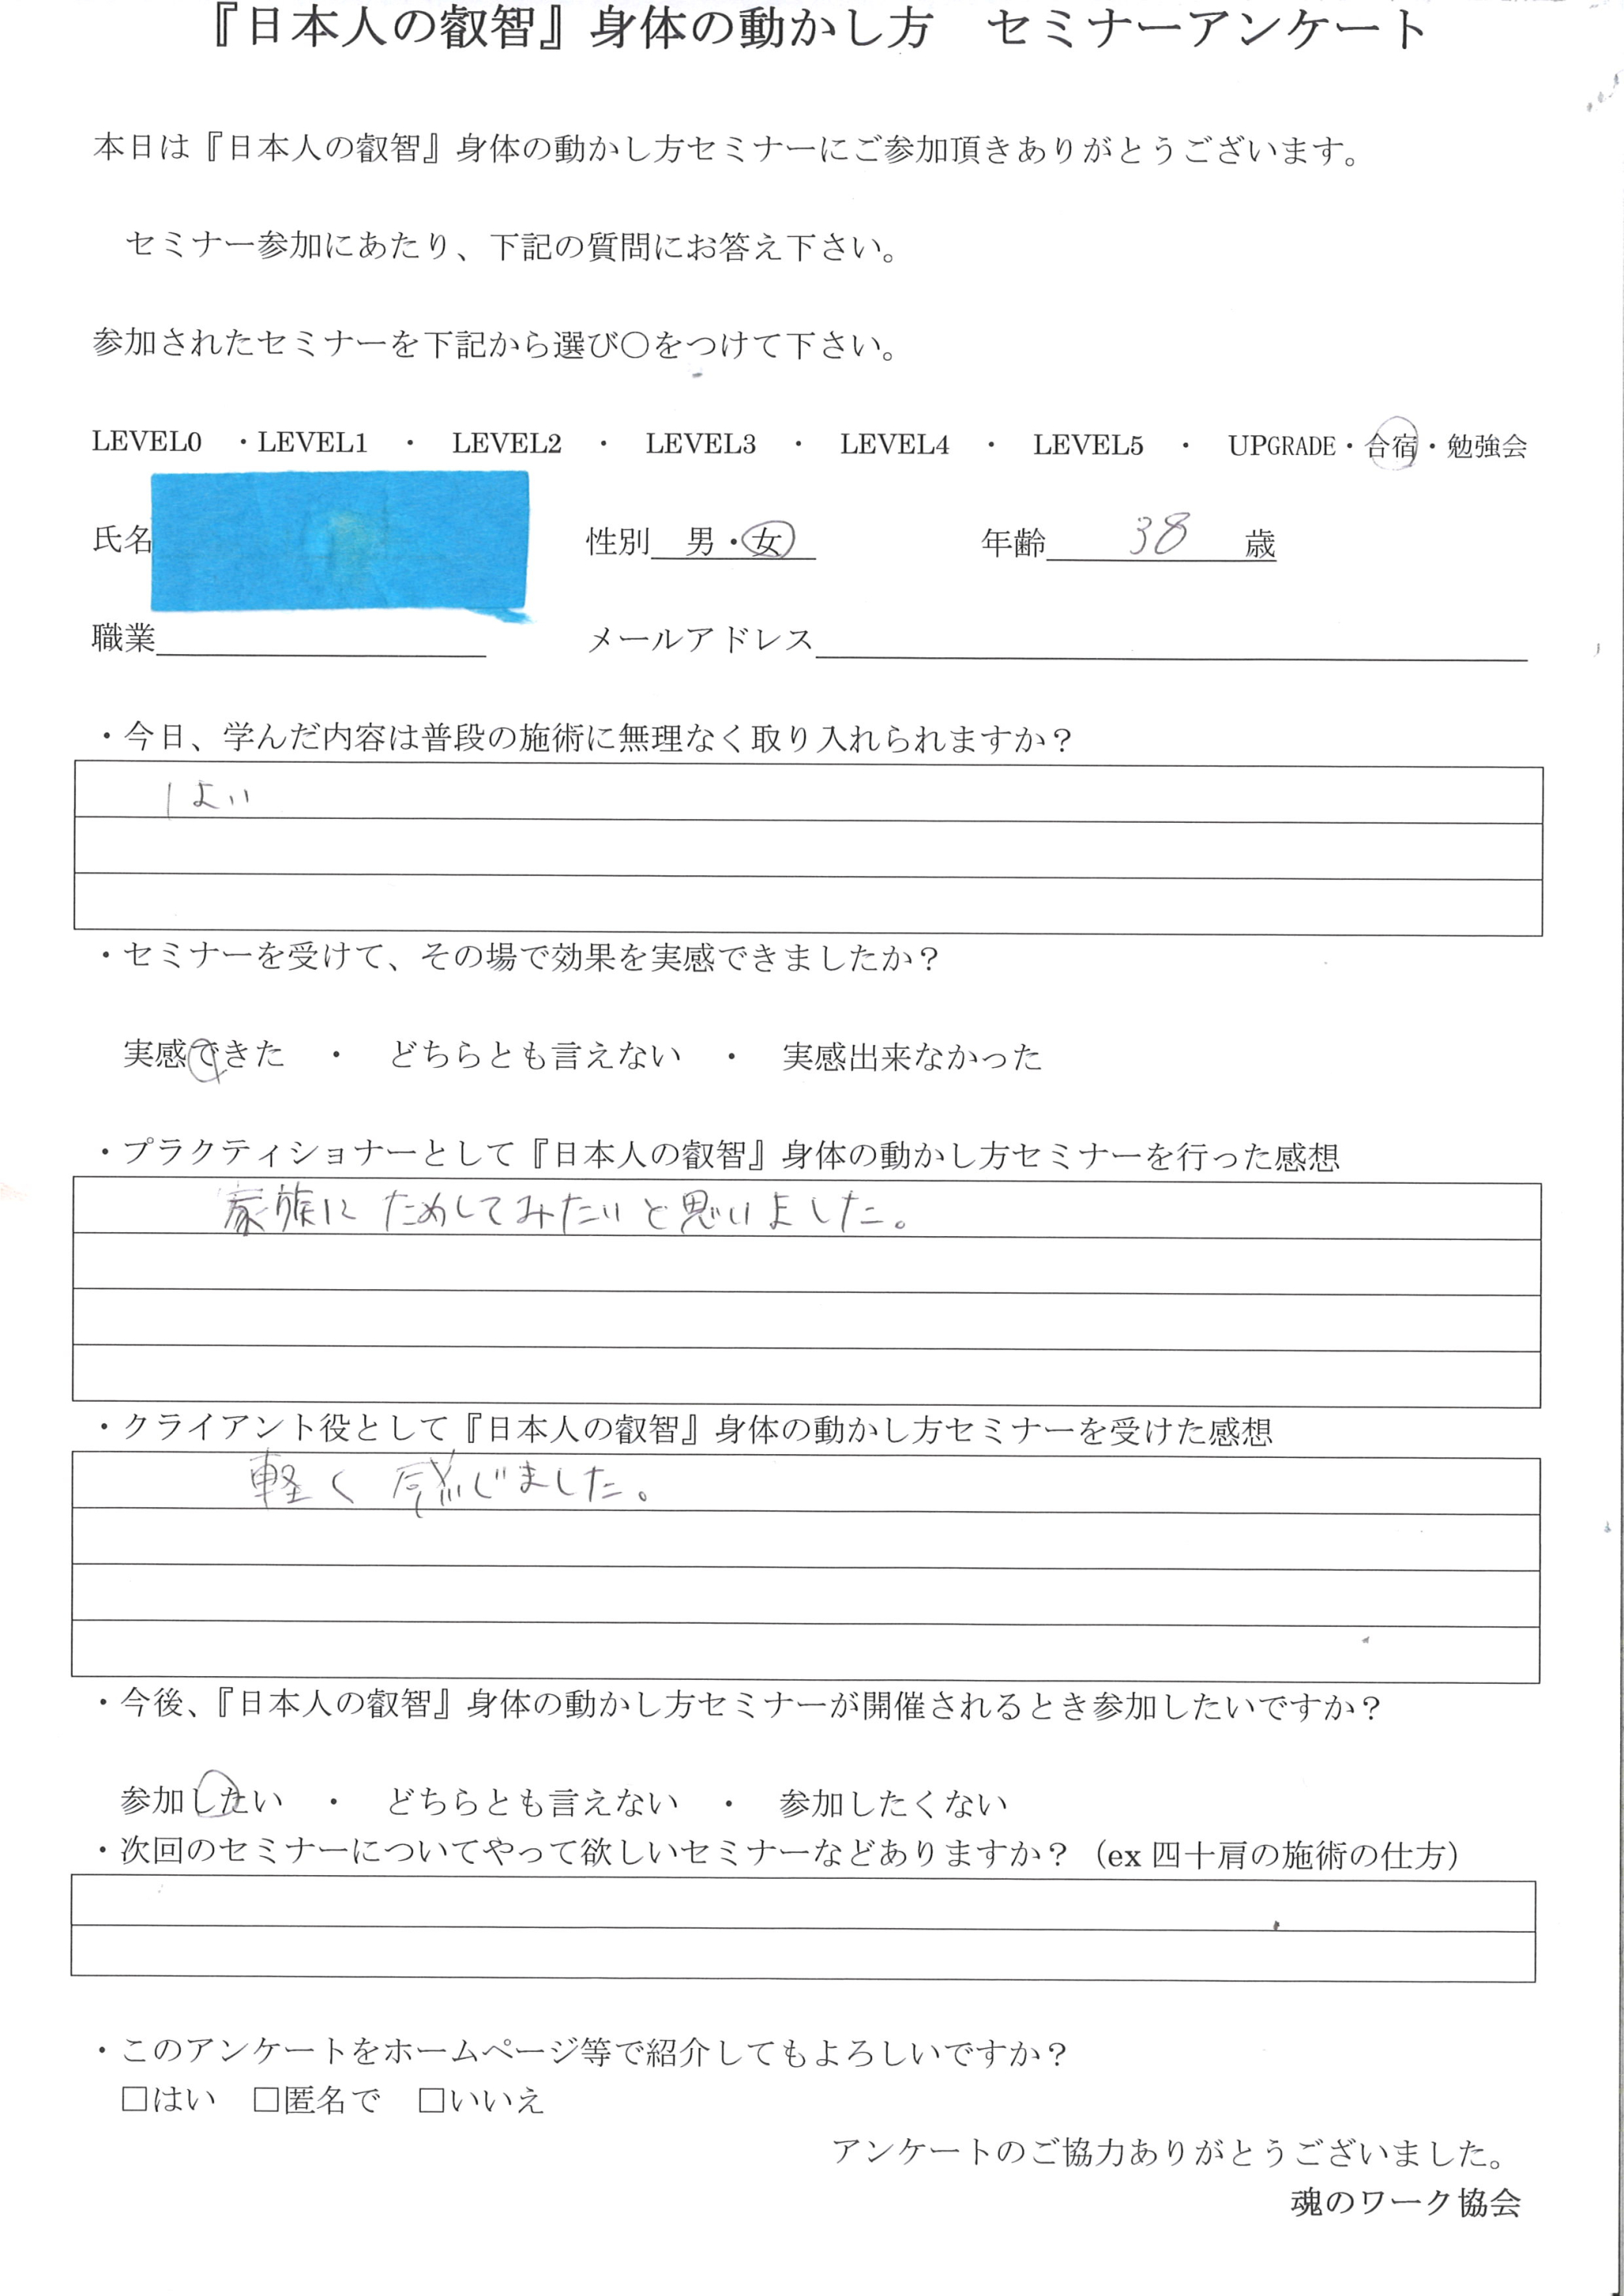 『日本人の叡智』身体の動かし方　セミナーアンケート
本日は『日本人の叡智』身体の動かし方セミナーにご参加頂きありがとうございます。
セミナー参加にあたり、下記の質問にお答え下さい。
参加されたセミナーを下記から選び○をつけて下さい。
LEVEL0 ・LEVEL1 ・ LEVEL2 ・ LEVEL3 ・ LEVEL4 ・ LEVEL5 ・ UPGRADE・合宿・勉強会
氏名 性別 男・女 年齢 38 歳
職業 メールアドレス
・今日、学んだ内容は普段の施術に無理なく取り入れられますか？
はい
・セミナーを受けて、その場で効果を実感できましたか？
実感できた ・ どちらとも言えない ・ 実感出来なかった
・プラクティショナーとして『日本人の叡智』身体の動かし方セミナーを行った感想
家族に ためしてみたいと思いました。
・クライアント役として『日本人の叡智』身体の動かし方セミナーを受けた感想
軽く 感じました。
・今後、『日本人の叡智』身体の動かし方セミナーが開催されるとき参加したいですか？
参加したい ・ どちらとも言えない ・ 参加したくない
・次回のセミナーについてやって欲しいセミナーなどありますか？（ex 四十肩の施術の仕方）
・このアンケートをホームページ等で紹介してもよろしいですか？
□はい □匿名で □いいえ
アンケートのご協力ありがとうございました。
魂のワーク協会